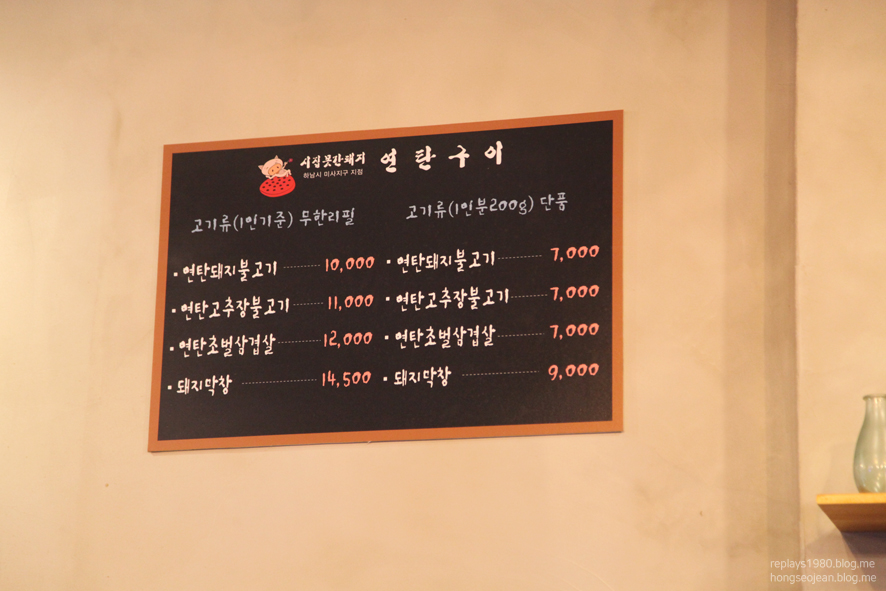 시집못간돼지 연탄구이
하남시 미사지구 지점
고기류(1인기준) 무한리필
· 연탄돼지불고기 10,000
· 연탄고추장불고기 11,000
· 연탄초벌삼겹살 12,000
· 돼지막창 14,500
고기류(1인분200g) 단품
· 연탄돼지불고기 7,000
· 연탄고추장불고기 7,000
· 연탄초벌삼겹살 7,000
· 돼지막창 9,000
replays1980.blog.me
hongseojean.blog.me